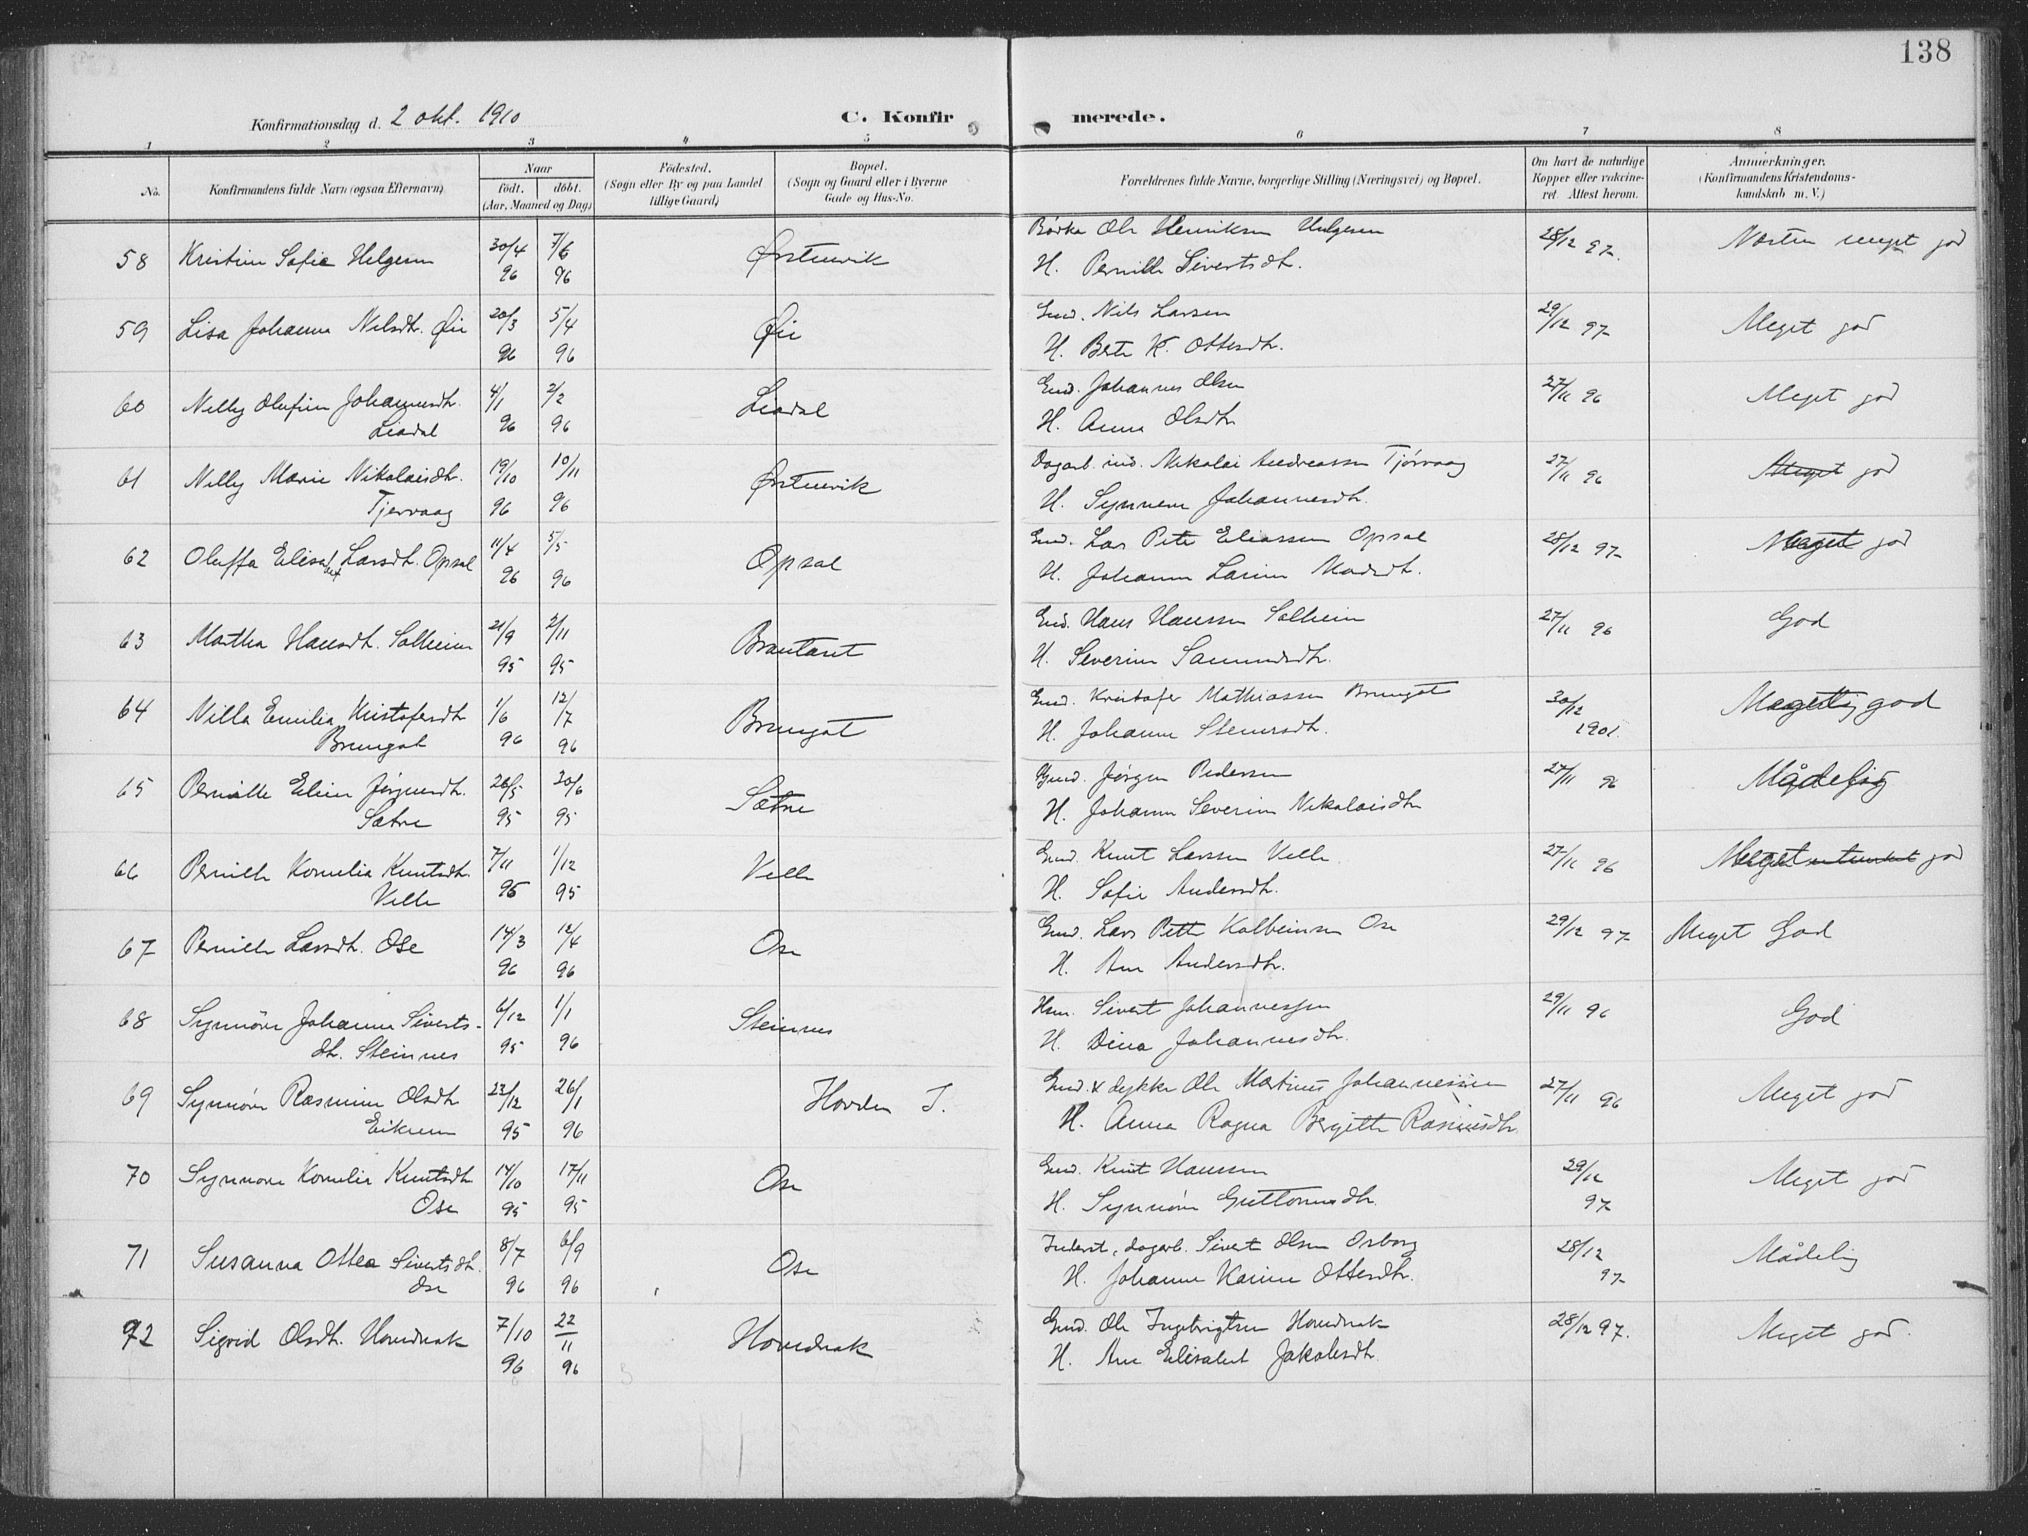 138
Konfirmationsdag d. 2 okt. 1910
C. Konfirmerede.
1 2 3 4 5 6 7 8
No.
Konfirmandens fulde Navn (ogsaa Efternavn).
Naar
födt. döbt.
(Aar, Maaned og Dag)
Födested.
(Sogn eller By og paa Landet
tillige Gaard)
Bopæl.
(Sogn og Gaard eller i Byerne
Gade og Hus-No.
Forældrenes fulde Navne, borgerlige Stilling (Næringsvei) og Bopæl.
Om havt de naturlige
Kopper eller vakcine-
ret. Attest herom.
Anmærkninger.
(Konfirmandens Kristendoms-
kundskab m. V.)
58 Kristine Sofie Helgesen 30/4 96 7/6 96 Ørstenvik Ole Henriksen Helgesen 28/12 97. Næsten meget god
H. Pernille Sivertsdt.
59 Lisa Johanna Nilsdt. Øie 20/3 96 5/4 96 Øie Gmd. Nils Larsen 29/12 97 Meget god
H. Berte K. Ottesdt.
60 Nelly Olufine Johannesdt. 4/1 96 2/2 96 Liadal Gmd. Johannes Olsen 27/11 96 Meget god
Liadal H. Anna Olsdt.
61 Nelly Marie Nikolaisdt. 19/10 96 10/11 96 Ørstenvik Dagarb. ind. Nikolai Andreassen Tjørvaag 27/11 96 Meget god
Tjervaag H. Synneve Johannesdt.
62 Oluffa Elisabet Larsdt. Opsal 11/4 96 5/5 96 Opsal Gmd. Lars Peter Eliassen Opsal 28/12 97 Meget god
H. Johanne Larine Madsdt.
63 Martha Hansdt. Solheim 21/9 95 2/11 95 Gmd. Hans Hanssen Solheim 27/11 96 God
H. Severine
64 Nilla Emilia Kristofersdt. 1/6 96 12/7 96 Brungot Gmd. Kristofer Mathiassen Brungot 30/12 1901. god
Brungot H. Johanne
65 Pernille Eline Jørgensdt. 26/5 95 30/6 95 Sætre Gmd. Jørgen Pedersen 27/11 96 Mådelig
Sætre H. Johanne Severine Nikolaisdt.
66 Pernille Kornelia Knutsdt. 7/11 95 1/12 95 Velle Gmd. Knut Larssen Velle 27/11 96 Meget god
Velle H. Sofie Andersdt.
67 Pernille Larsdt. Ose 14/3 96 12/4 96 Ose Gmd. Lars Petter Kolbeinsen Ose 29/12 97 Meget God
H. Ane Andersdt.
68 Synnøve Johanne Siverts- 6/12 95 1/1 96 Steinnes Hsm. Sivert Johannessen 29/11 96 God
dt. Steinnes H. Dina Johannesdt.
69 Synnøve Rasmine Olsdt. 23/12 95 26/1 96 Hovden J. Gmd. & dykker Ole Martinus Johannessen 27/11 96 Meget god
Eikrem H. Anna Ragna Bergitte Rasmusdt.
70 Synnøve Kornelia Knutsdt. 14/10 95 17/11 95 Ose Gmd. Knut Hanssen 29/12 97 Meget god
Ose H. Synnøve Guttormsdt.
71 Susanna Ottea Sivertsdt. 8/7 96 6/9 96 Ose Inderst, dagarb. Sivert Olsen Osborg 28/12 97 Mådelig
Ose H. Johanne Karine Ottesdt.
72 Sigrid Olsdt. Hovednak 7/10 96 22/11 96 Hovednak Gmd. Ole Ingebrigtsen Hovednak 28/12 97. Meget god.
H. Ane Elisabet Jakobsdt.